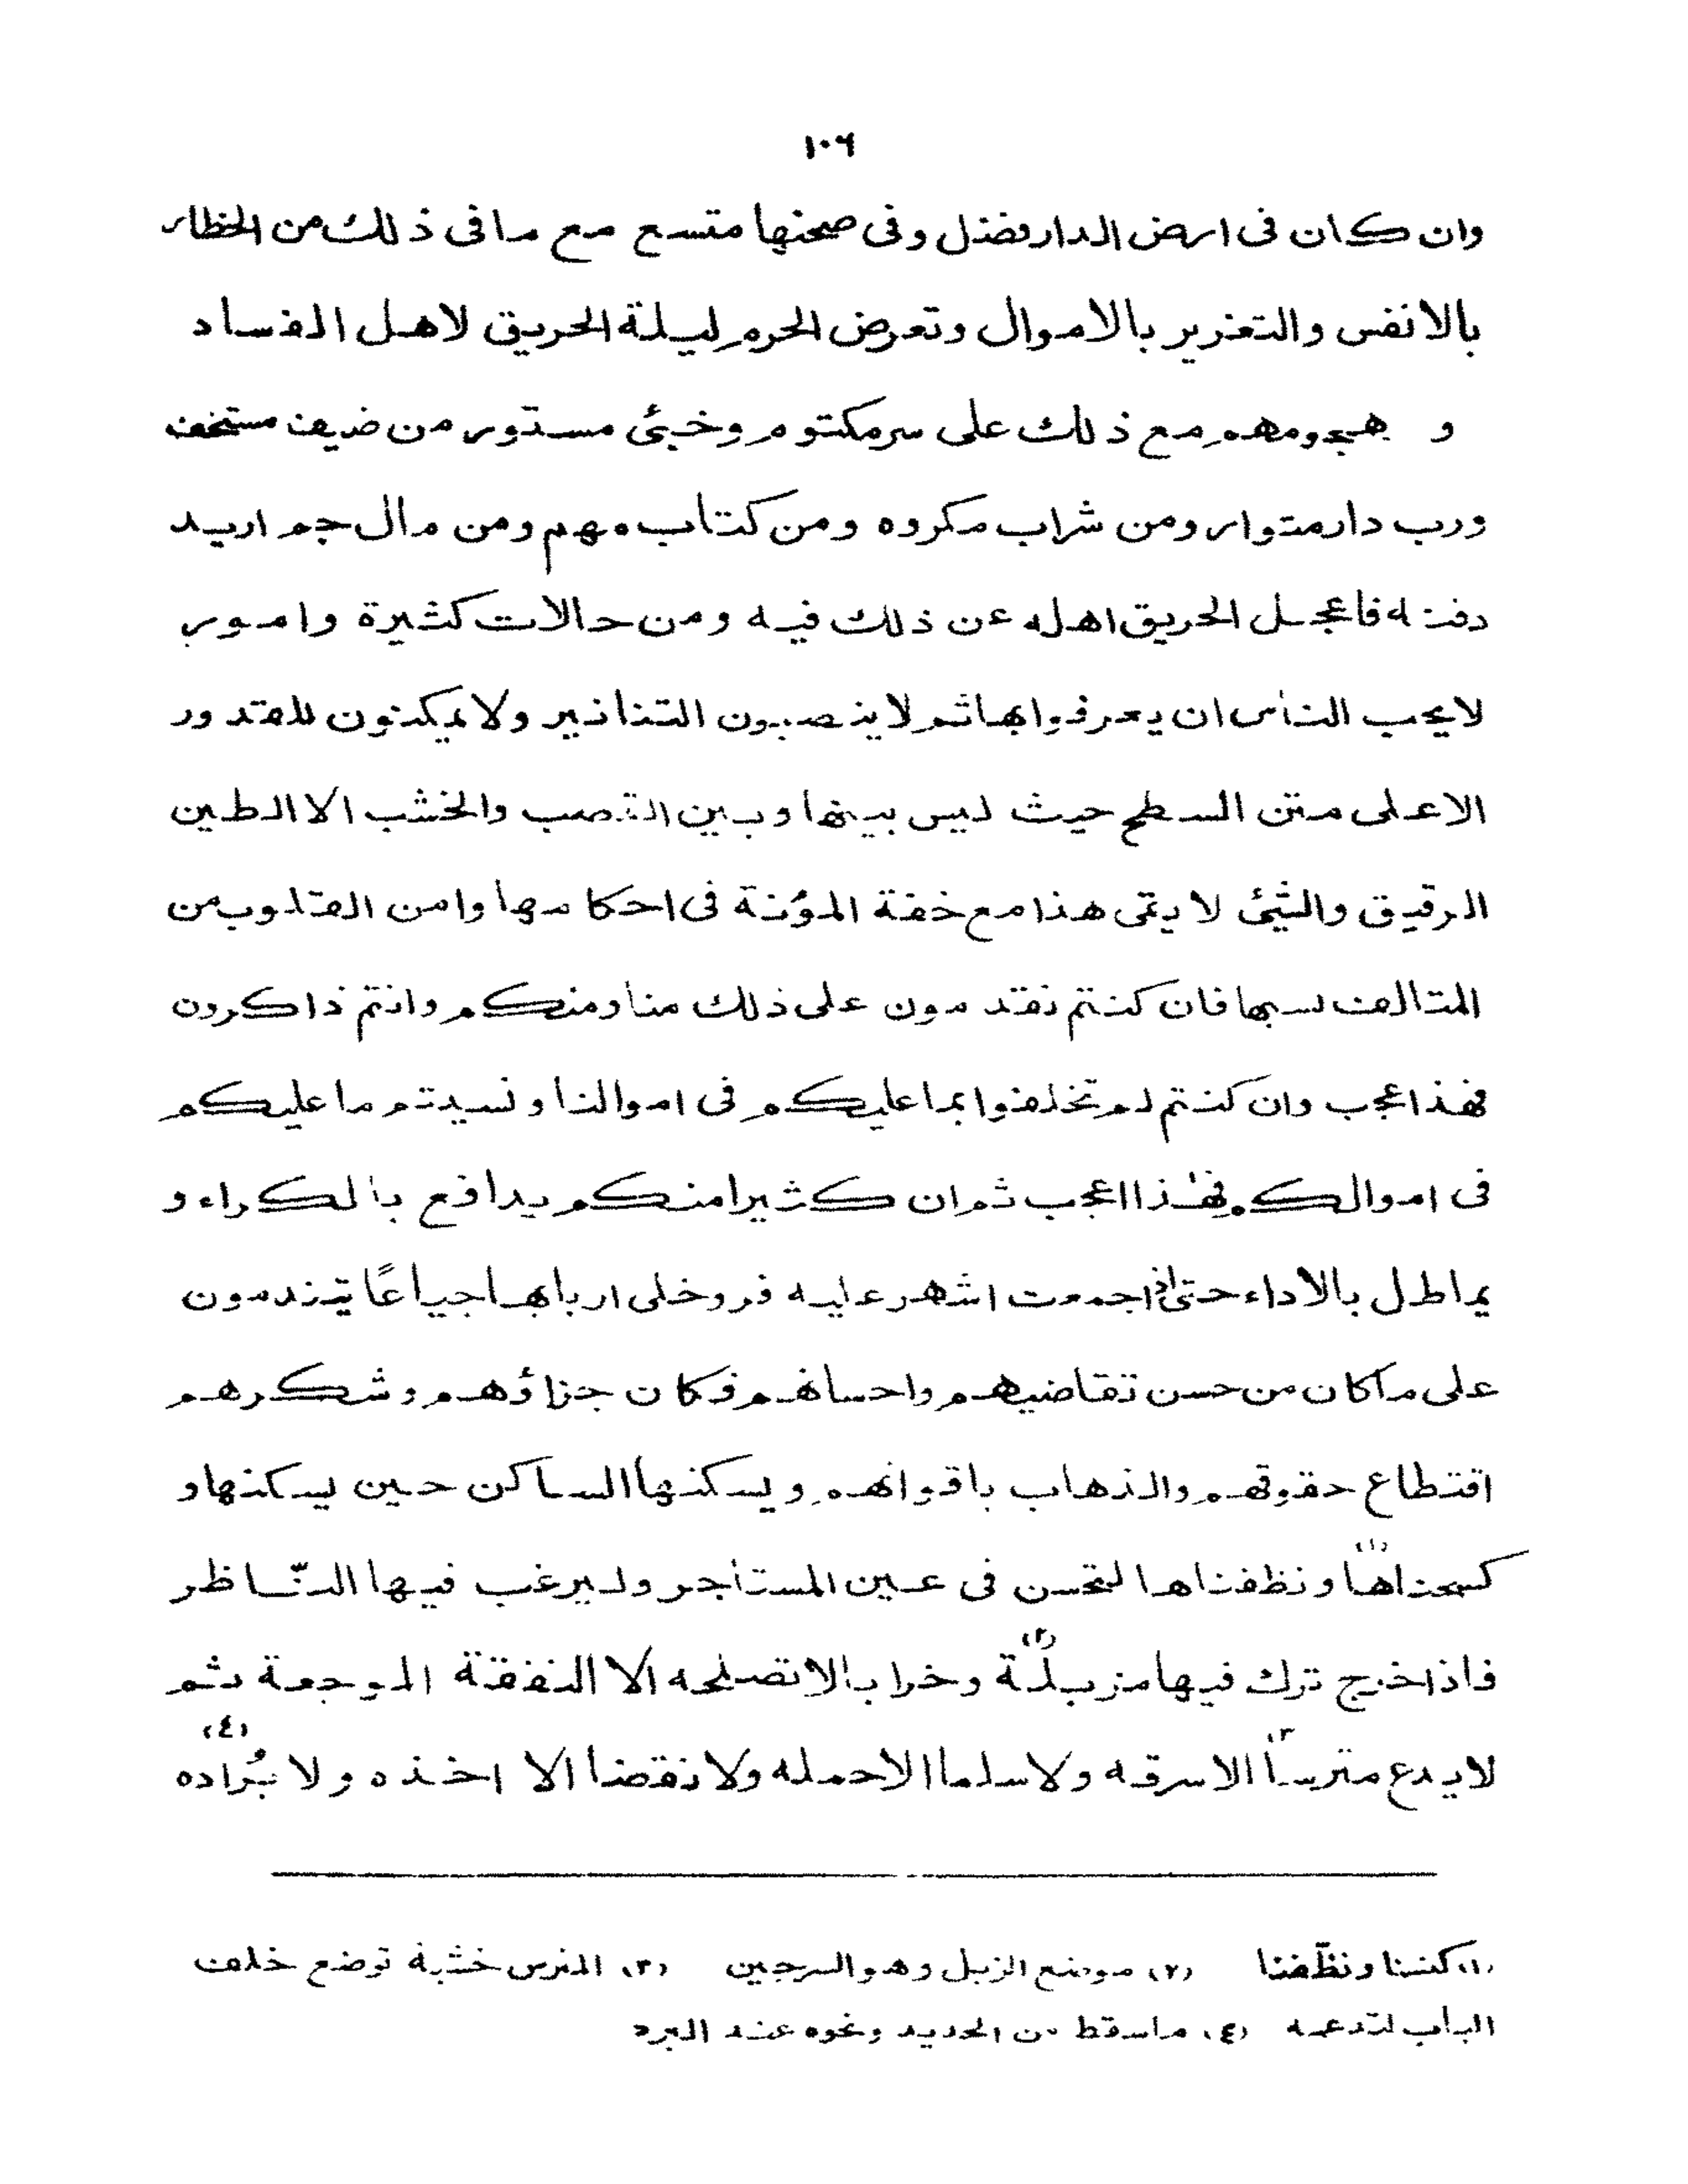 ١٠٦
وان كان فى ارض الدار فضل وفى صحنها متسع مع ما فى ذلك من الخطار
بالانفس والتغرير بالاموال وتعرض الحرم ليلة الحريق لاهل الفساد
و هجومهم مع ذلك على سر مكتوم وخبئ مستور من ضيف مستخف
ورب دار متوار ومن شراب مكروه ومن كتاب مهم ومن مال جم اريد
دفنه فاعجل الحريق اهله عن ذلك فيه ومن حالات كثيرة وامور
لا يحب الناس ان يعرفوا بها ثم لا ينصبون التنانير ولا يمكنون للقدور
الا على متن السطح حيث ليس بينها وبين القصب والخشب الا الطين
الرقيق والشيئ لا يقى هذا مع خفة المؤنة فى احكامها وامن القلوب من
المتالف بسبها فان كنتم تقدمون على ذلك منا ومنكم وانتم ذاكرون
فهذا عجب وان كنتم لم تحلفوا بما عليكم فى اموالنا ونسيتم ما عليكم
فى اموالكم فهذا اعجب ثم ان كثيرا منكم يدافع بالكراء و
يماطل بالاداء حتى اذا جمعت اشهر عليه فر وخلى اربابها جياعًا يتندمون
على ما كان من حسن تقاضيهم واحسانهم فكان جزاؤهم وشكرهم
اقتطاع حقوقهم والذهاب باقواتهم ويسكنها الساكن حين يسكنها و
كسحناها (١) ونظفناها لتحسن فى عين المستأجر وليرغب فيها النّاظر
فاذا خرج ترك فيها مزبلة (٢) وخرابا لا تصلحه الا النفقة الموجعة ثم
لا يدع مترسا (٣) الا سرقه ولا سلما الا حمله ولا نقضا الا اخذه ولا بُرّاده (٤)
(١) كنسنا ونظّفنا (٢) موضع الزبل وهو السرجين (٣) المترس خشبة توضع خلف
الباب لتدعمه (٤) ما سقط من الحديد ونحوه عند البرد